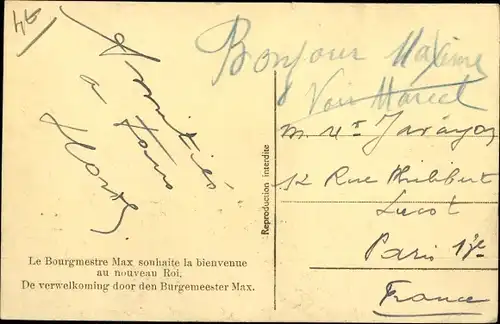 Amitiés
a tous
Le Bourgmestre Max souhaite la bienvenue
au nouveau Roi.
De verwelkoming door den Burgemeester Max.
Reproduction interdite
Bonjour Maxime
Voir Marcel
12 Rue Philibert
Lucot
Paris 13e
France